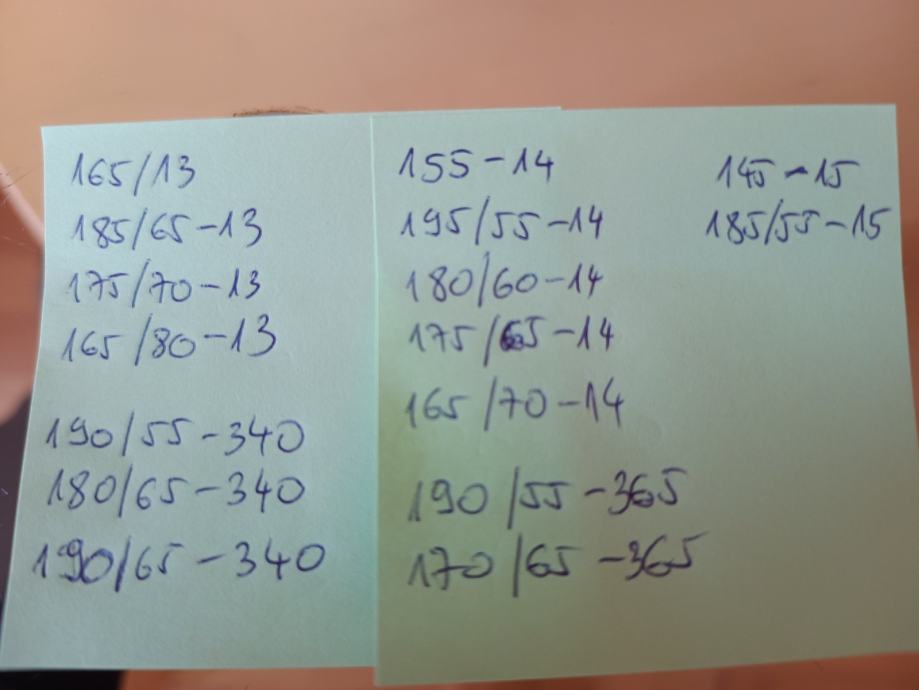 165/13
185/65-13
175/70-13
165/80-13
190/55-340
180/65-340
190/65-340
155-14
195/55-14
180/60-14
175/65-14
165/70-14
190/55-365
170/65-365
145-15
185/55-15